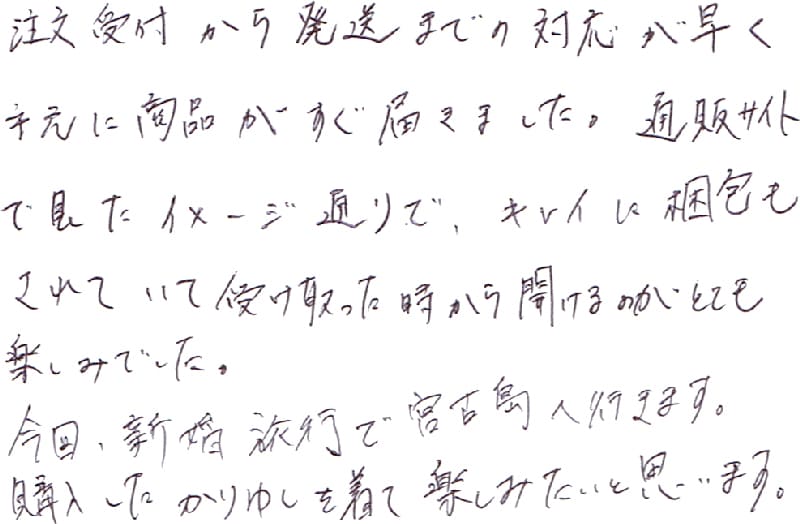 注文受付から発送までの対応が早く
手元に商品がすぐ届きました。通販サイト
で見たイメージ通りで、キレイに梱包も
されていて受け取った時から開けるのがとても
楽しみでした。
今回、新婚旅行で宮古島へ行きます。
購入したかりゆしを着て楽しみたいと思います。